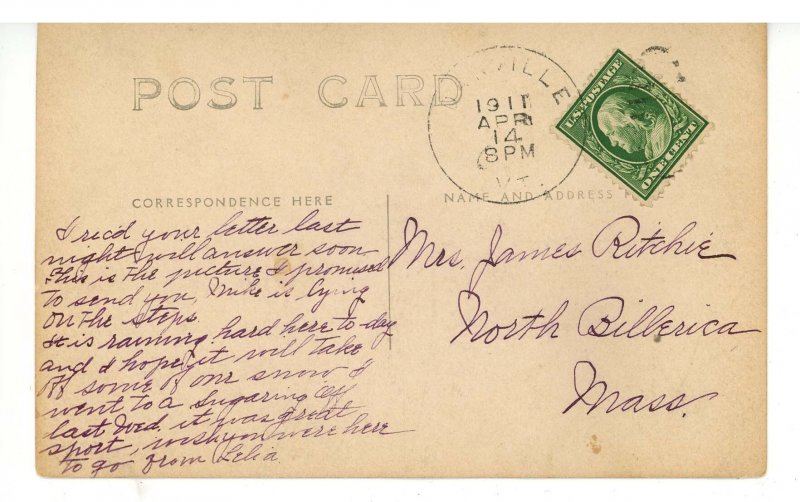 POST CARD
VILLE
1911
APR
14
8PM
VT.
U.S. POSTAGE
ONE CENT
CORRESPONDENCE HERE
NAME AND ADDRESS
I rec'd your letter last
night will answer soon
This is the picture I promised
to send you, Mike is lying
on the steps.
It is raining hard here to-day
and I hope it will take
off some of our snow I
went to a sugaring off
last Wed, it was great
sport, wish you were here
to go from Lelia
Mrs. James Ritchie
North Billerica
Mass.